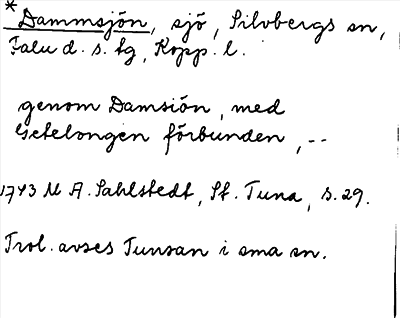 * Dammsjön, sjö, Silvbergs sn,
Falu d. s. tg, Kopp. l.
genom Damsiön, med
Getelongen förbunden, --
1743 M A. Sahlstedt, St. Tuna, s. 29.
Trol. avses Tunsan i sma sn.